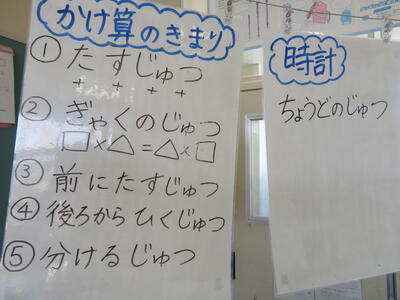 かけ算のきまり
①たすじゅつ
+ + + +
②ぎゃくのじゅつ
□×△=△×□
③前にたすじゅつ
④後ろからひくじゅつ
⑤分けるじゅつ
時計
ちょうどのじゅつ